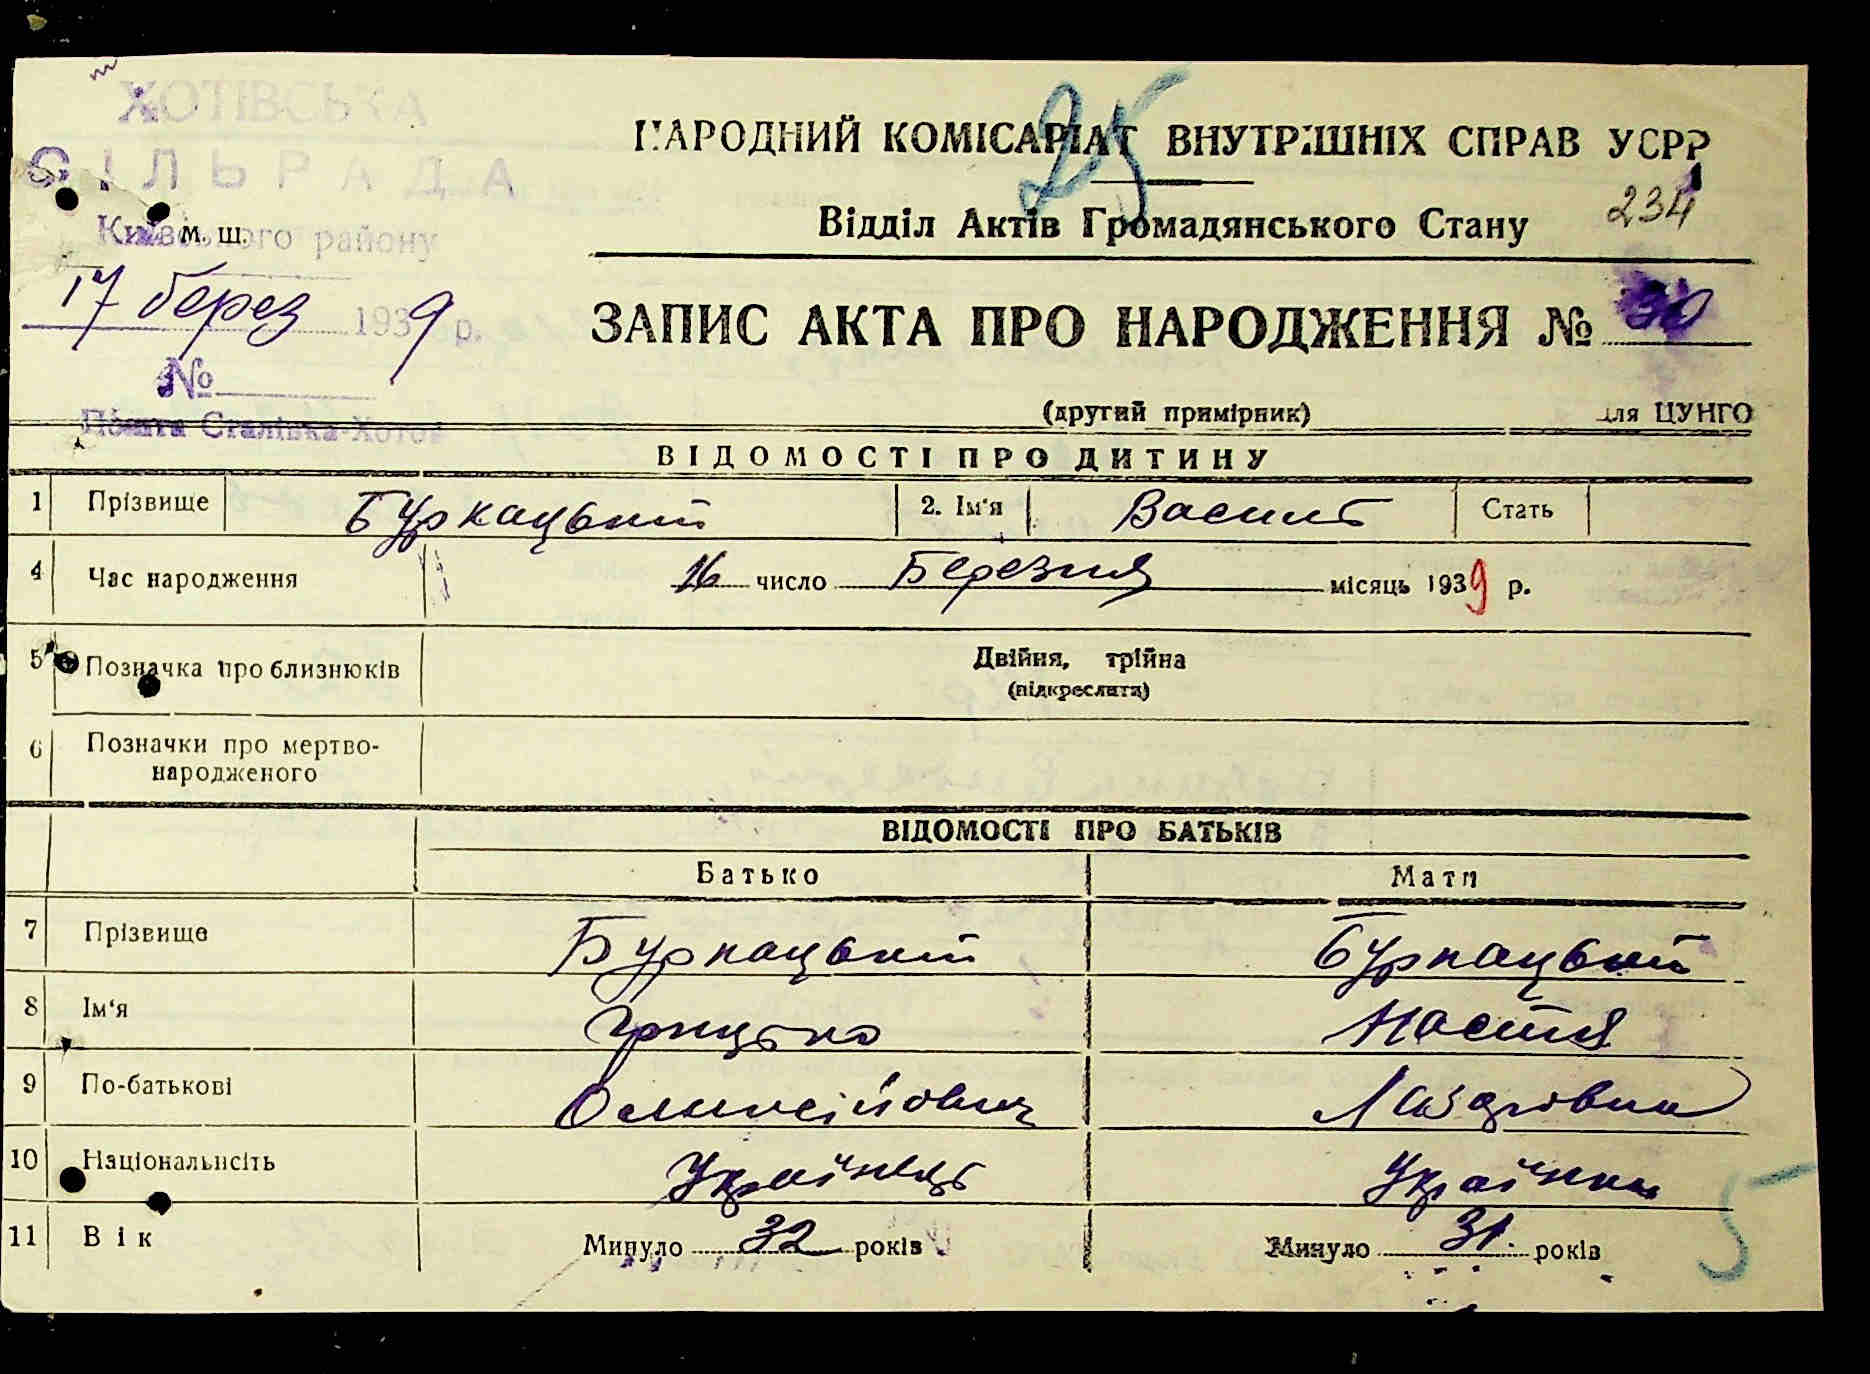 25
ХОТІВСЬКА
СІЛЬРАДА
Київського району
м. ш.
17 берез 1939 р.
№
Пошта Сталінка-Хотов
НАРОДНИЙ КОМІСАРІАТ ВНУТРІШНІХ СПРАВ УСРР
234
Відділ Актів Громадянського Стану
ЗАПИС АКТА ПРО НАРОДЖЕННЯ № 30
(другий примірник) для ЦУНГО
ВІДОМОСТІ ПРО ДИТИНУ
1 Прізвище Буркацький 2. Ім'я Василь Стать
4 Час народження 16 число Березня місяць 1939 р.
5 Позначка про близнюків Двійня, трійна
(підкреслити)
6 Позначки про мертво-
народженого
ВІДОМОСТІ ПРО БАТЬКІВ
Батько Мати
7 Прізвище Буркацький Буркацький
8 Ім'я Грицько Настя
9 По-батькові Олексійович Лазаровна
10 Національність Українець Українка
11 Вік Минуло 32 років Минуло 31 років
5